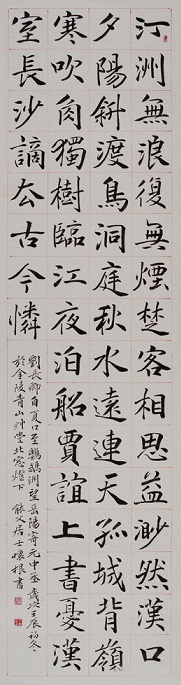 汀洲無浪復無煙楚客相思益渺然漢口
夕陽斜渡鳥洞庭秋水遠連天孤城背嶺
寒吹角獨樹臨江夜泊船賈誼上書憂漢
室長沙謫去古今憐
劉長卿自夏口至鸚鵡洲望岳陽寄元中丞歲次壬辰初冬
於金陵青山艸堂北窗燈下 父居士懷根書